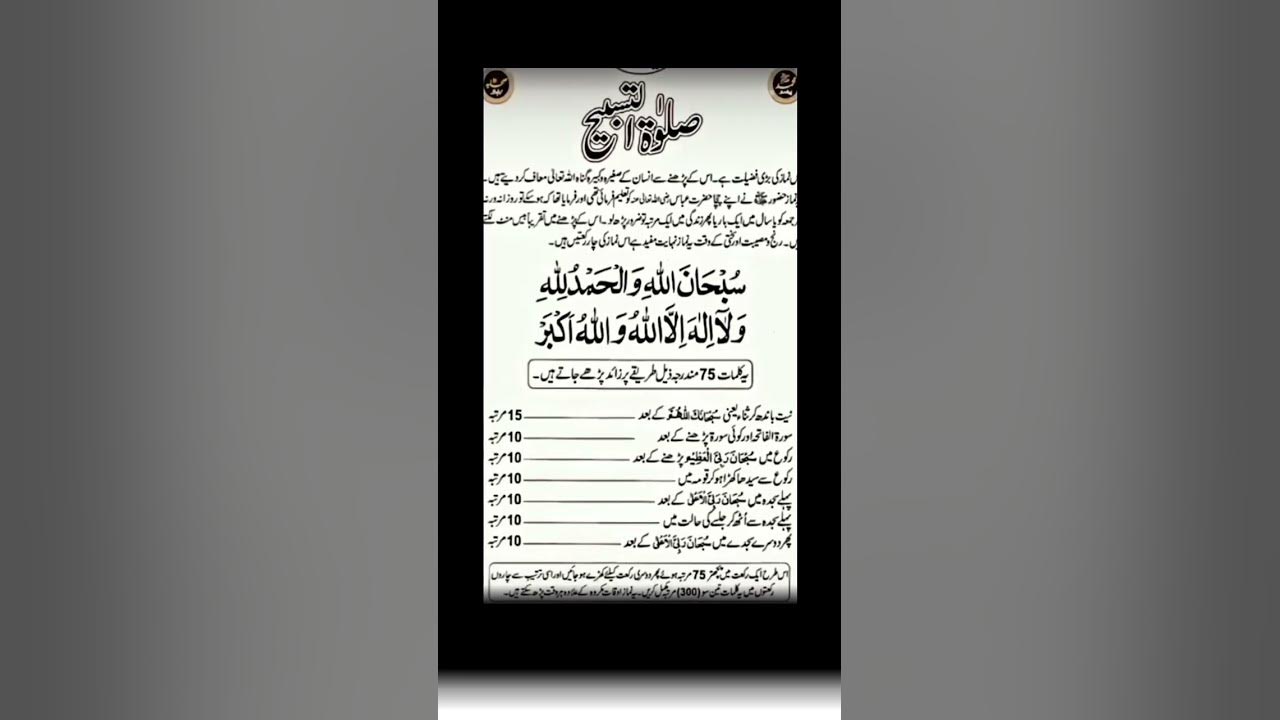 صلوٰۃ التسبیح
س نماز کی بڑی فضیلت ہے۔ اس کے پڑھنے سے انسان کے صغیرہ و کبیرہ گناہ اللہ تعالیٰ معاف کر دیتے ہیں۔
نماز حضور ﷺ نے اپنے چچا حضرت عباس رضی اللہ تعالیٰ عنہ کو تعلیم فرمائی تھی اور فرمایا تھا کہ ہو سکے تو روزانہ ورنہ
جمعہ کو یا سال میں ایک بار یا پھر زندگی میں ایک مرتبہ تو ضرور پڑھ لو۔ اس کے پڑھنے میں تقریباً بیس منٹ لگتے
یں۔ رنج و مصیبت اور سختی کے وقت یہ نماز نہایت مفید ہے اس نماز کی چار رکعتیں ہیں۔
سُبْحَانَ اللهِ وَالْحَمْدُ لِلّٰهِ
وَلَآ اِلٰهَ اِلَّا اللهُ وَاللهُ اَكْبَرْ
یہ کلمات 75 مندرجہ ذیل طریقے پر زائد پڑھے جاتے ہیں۔
نیت باندھ کر ثناء یعنی سُبْحَانَكَ اللّٰهُمَّ کے بعد ــــــــ 15 مرتبہ
سورۃ الفاتحہ اور کوئی سورۃ پڑھنے کے بعد ــــــــ 10 مرتبہ
رکوع میں سُبْحَانَ رَبِّيَ الْعَظِيْم پڑھنے کے بعد ــــــــ 10 مرتبہ
رکوع سے سیدھا کھڑا ہو کر قومہ میں ــــــــ 10 مرتبہ
پہلے سجدہ میں سُبْحَانَ رَبِّيَ الْاَعْلٰى کے بعد ــــــــ 10 مرتبہ
پہلے سجدہ سے اُٹھ کر جلسے کی حالت میں ــــــــ 10 مرتبہ
پھر دوسرے سجدے میں سُبْحَانَ رَبِّيَ الْاَعْلٰى کے بعد ــــــــ 10 مرتبہ
اس طرح ایک رکعت میں پچھتر 75 مرتبہ ہوئے پھر دوسری رکعت کیلئے کھڑے ہو جائیں اور اسی ترتیب سے چاروں
رکعتوں میں یہ کلمات تین سو (300) مرتبہ مکمل کریں۔ یہ نماز اوقات مکروہ کے علاوہ ہر وقت پڑھ سکتے ہیں۔